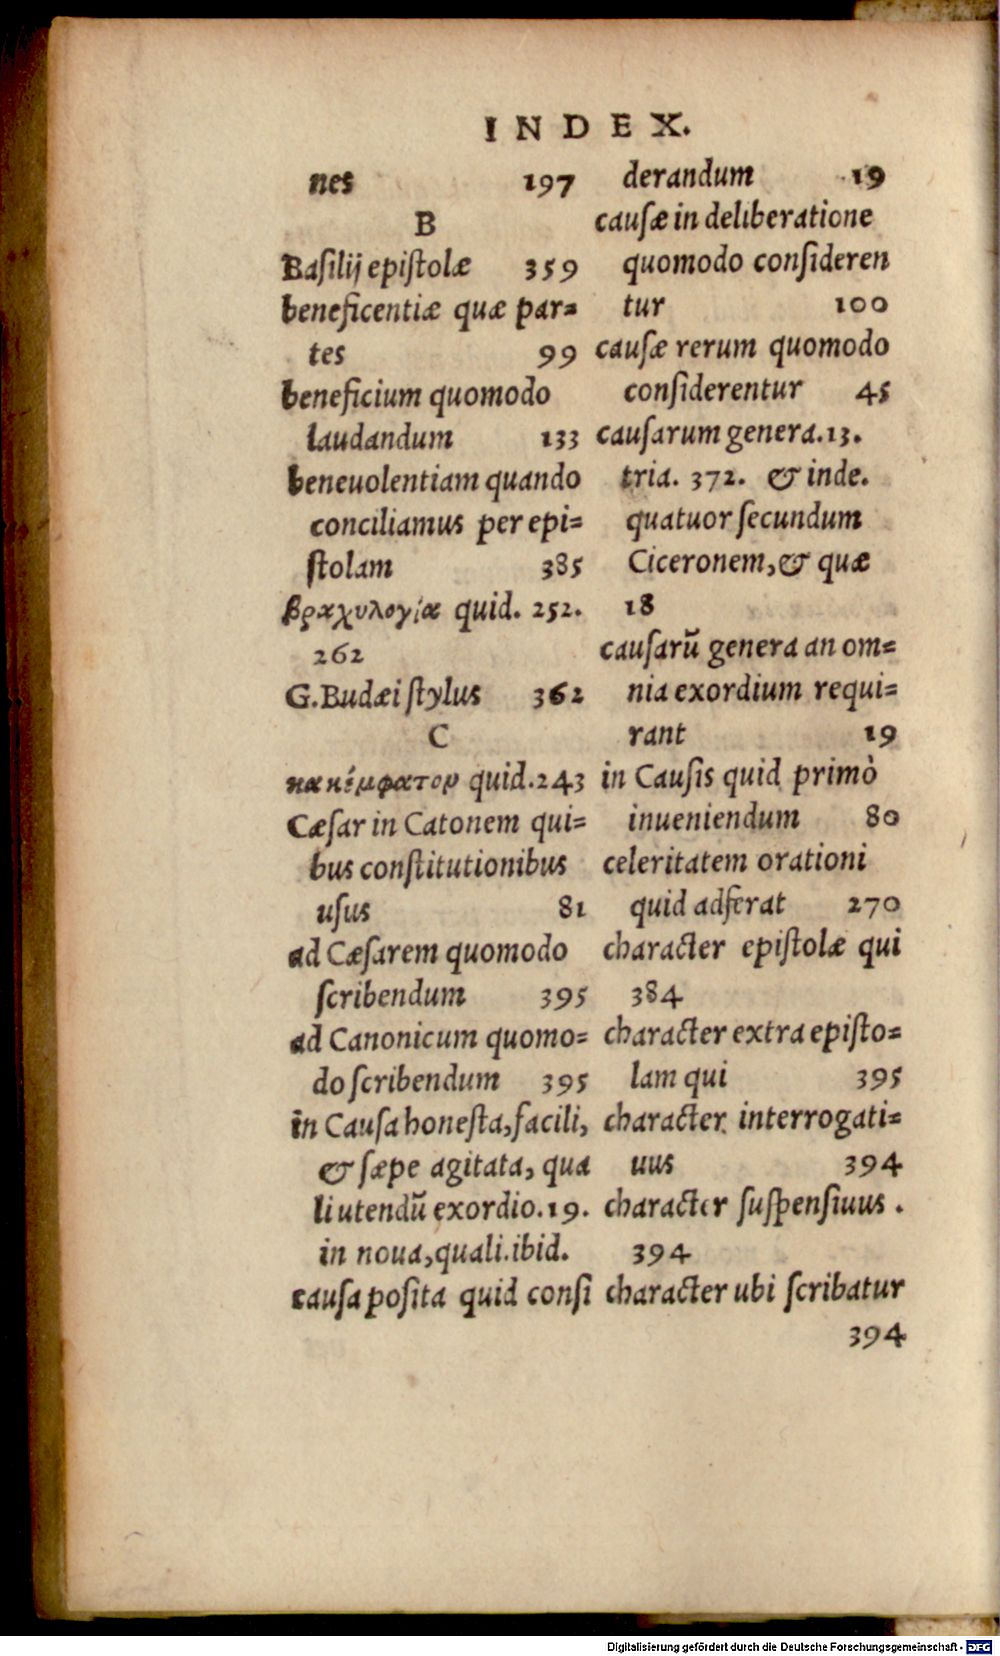 INDEX.
nes 197
B
Baſilij epiſtolæ 359
beneficentiæ quæ par=
tes 99
beneficium quomodo
laudandum 133
beneuolentiam quando
conciliamus per epi=
ſtolam 385
βραχυλογία quid. 252.
262
G. Budæi ſtylus 362
C
κακέμφατον quid. 243
Cæſar in Catonem qui=
bus conſtitutionibus
uſus 81
ad Cæſarem quomodo
ſcribendum 395
ad Canonicum quomo=
do ſcribendum 395
in Cauſa honeſta, facili,
& ſæpe agitata, qua
li utendū exordio. 19.
in noua, quali. ibid.
cauſa poſita quid conſi
derandum 19
cauſæ in deliberatione
quomodo conſideren
tur 100
cauſæ rerum quomodo
conſiderentur 45
cauſarum genera. 13.
tria. 372. & inde.
quatuor ſecundum
Ciceronem, & quæ
18
cauſarū genera an om=
nia exordium requi=
rant 19
in Cauſis quid primò
inueniendum 80
celeritatem orationi
quid adferat 270
character epiſtolæ qui
384
character extra epiſto=
lam qui 395
character interrogati=
uus 394
character ſuſpenſiuus .
394
character ubi ſcribatur
394
Digitalisierung gefördert durch die Deutsche Forschungsgemeinschaft - DFG